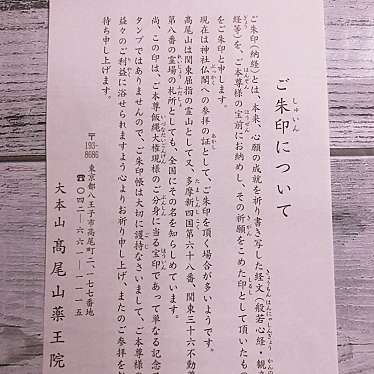 ご朱印について
ご朱印（納経）とは、本来、心願の成就を祈り書き写した経文（般若心経・観
経等）を、ご本尊様の宝前にお納めし、その祈願をこめた印として頂いたもの
をご朱印と申します。
現在は神社仏閣への参拝の証として、ご朱印を頂く場合が多いようです。
高尾山は関東屈指の霊山として又、多摩新四国第六十八番、関東三十六不動
第八番の霊場の札所としても、全国にその名を知らしめています。
尚、この印は、ご本尊飯縄大権現様のご分身に当る宝印であって単なる記念
タンプではありませんので、ご朱印帳は大切に護持なさいまして、ご本尊様
益々のご利益に浴せられますよう心よりお祈り申し上げ、またのご参拝を
待ち申し上げます。
〒193-8686
東京都八王子市高尾町二、一七七番地
☎〇四二－六六一－一一一五
大本山 髙尾山薬王院